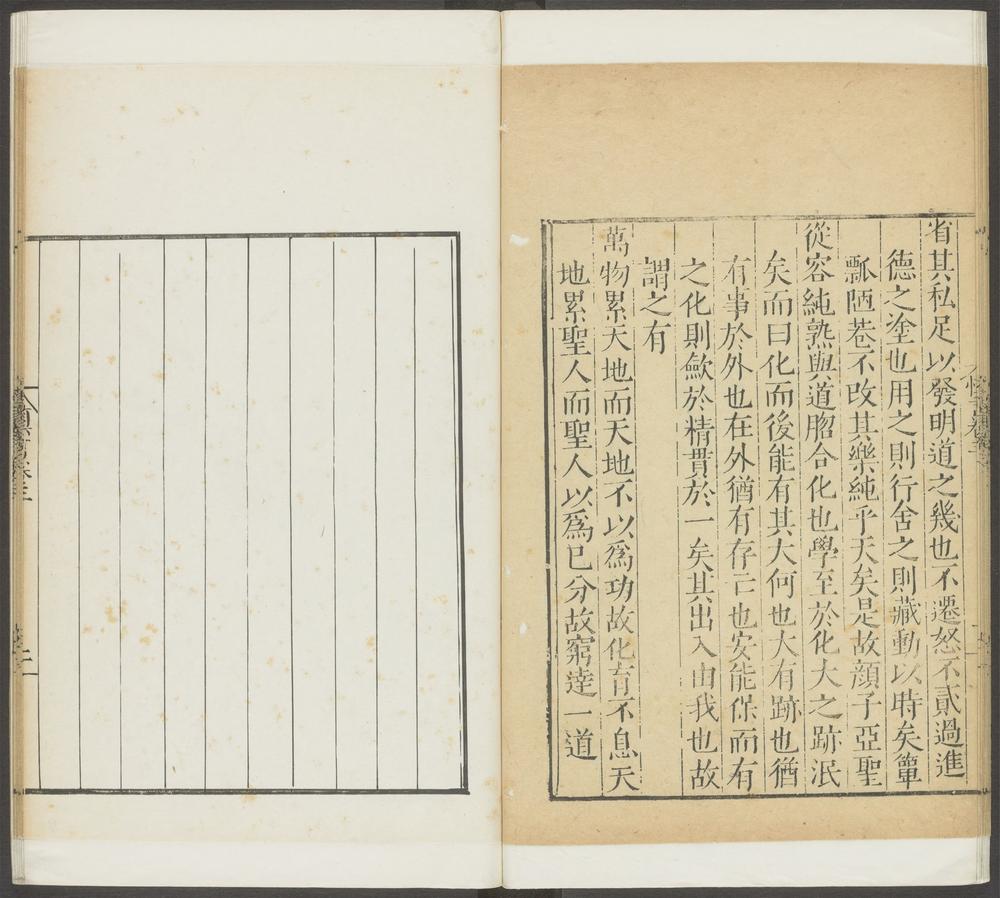 省其私足以發明道之幾也不遷怒不貳過進
德之塗也用之則行舍之則藏動以時矣簞
瓢陋巷不改其樂純乎天矣是故顔子亞聖
從容純熟與道脗合化也學至於化大之跡泯
矣而曰化而後能有其大何也大有跡也猶
有事於外也在外猶有存亡也安能保而有
之化則歛於精貫於一矣其出入由我也故
謂之有
萬物累天地而天地不以爲功故化育不息天
地累聖人而聖人以爲已分故窮達一道